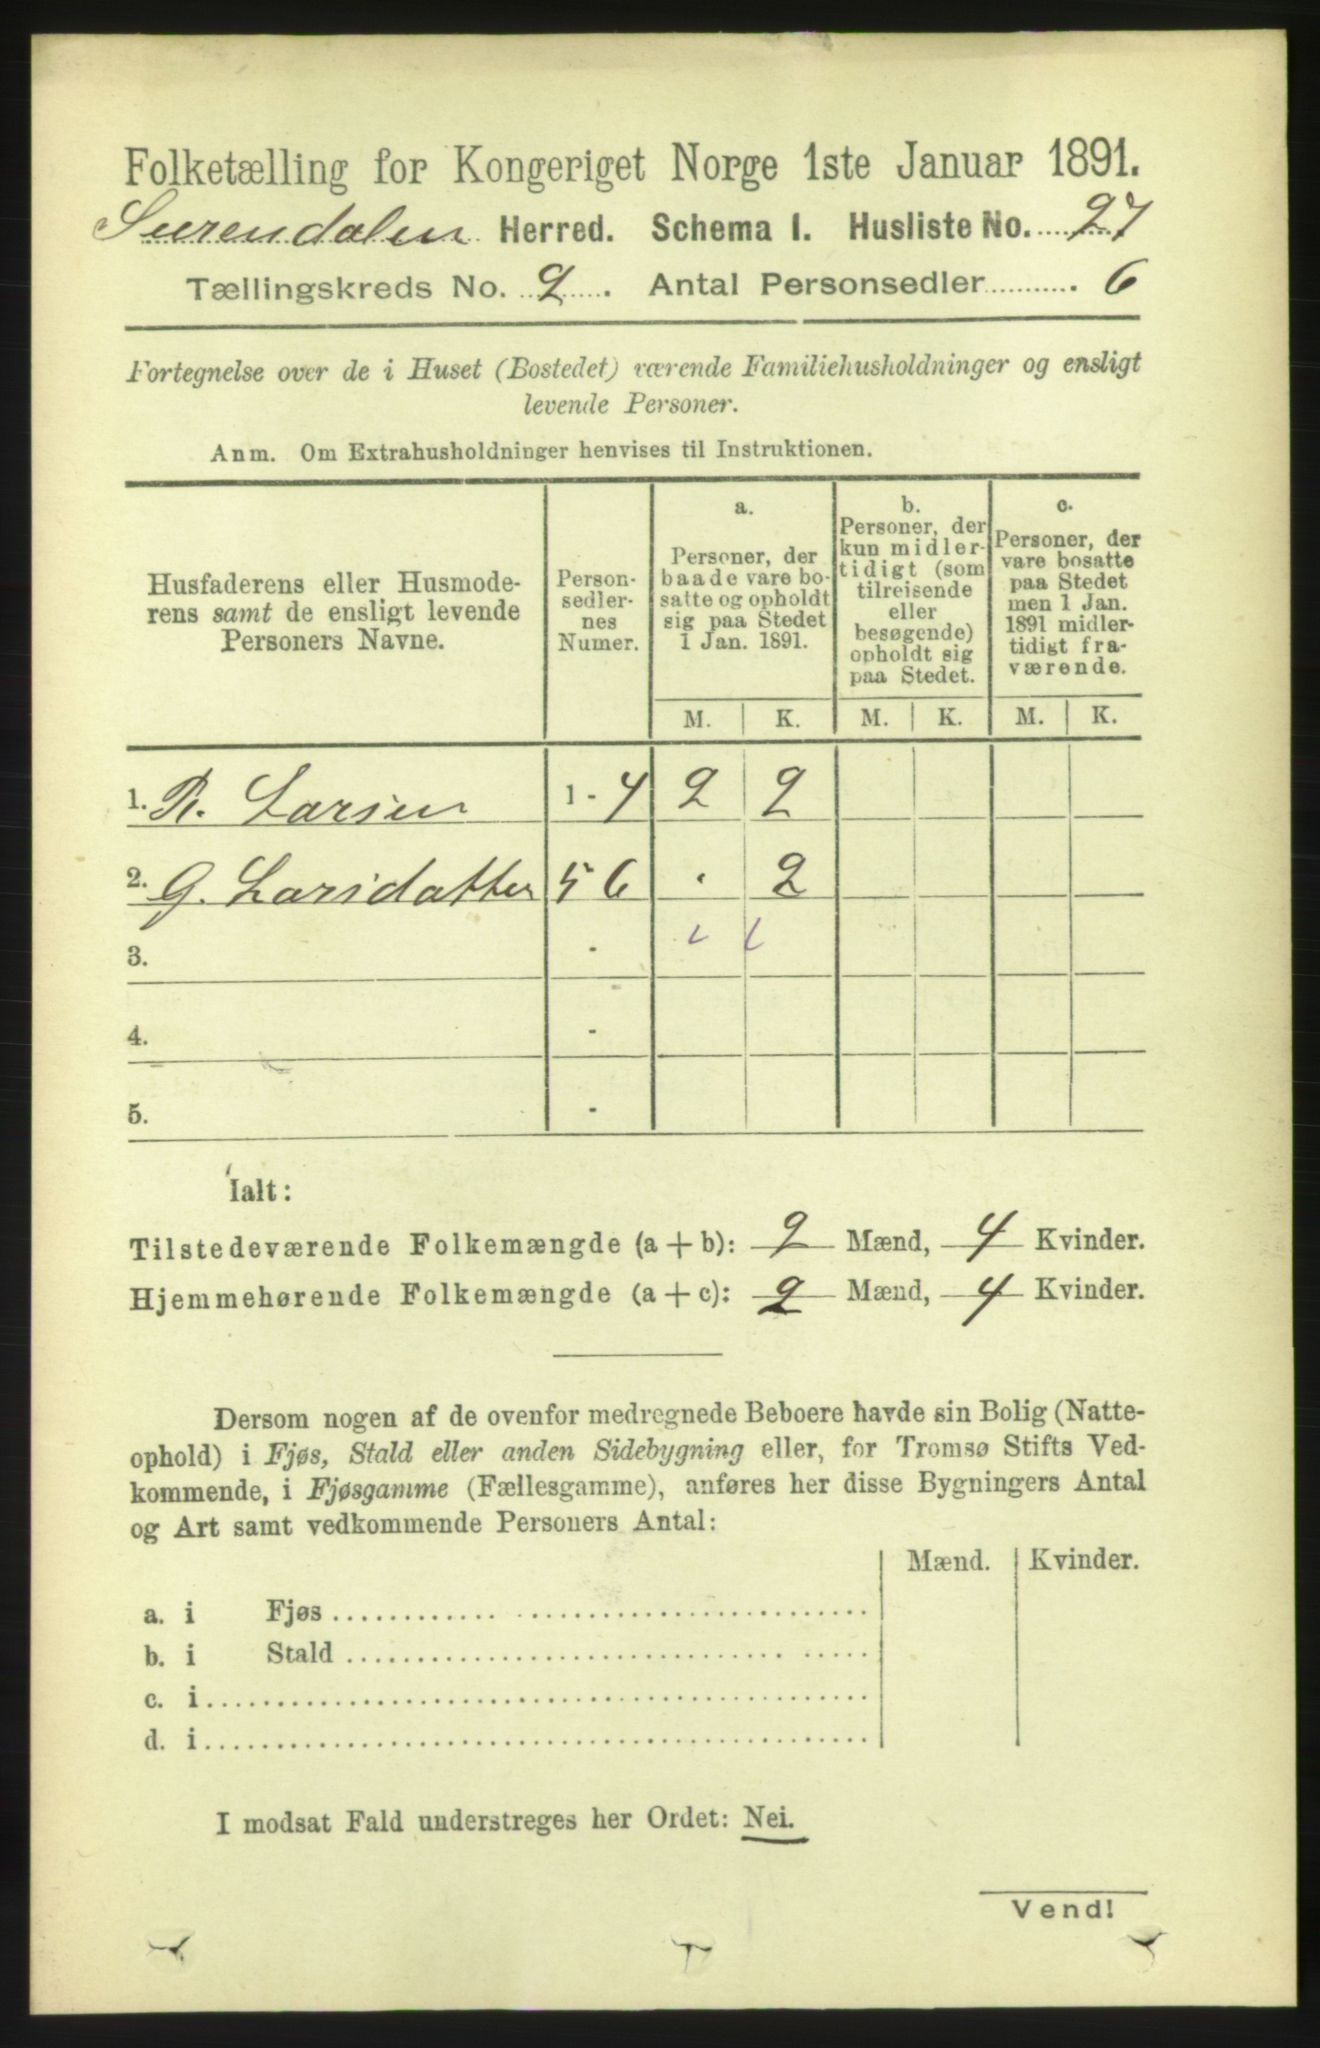 Folketælling for Kongeriget Norge 1ste Januar 1891.
Surendalen Herred. Schema I. Husliste No. 27
Tællingskreds No. 2. Antal Personsedler 6
Fortegnelse over de i Huset (Bostedet) værende Familiehusholdninger og ensligt
levende Personer.
Anm. Om Extrahusholdninger henvises til Instruktionen.
Husfaderens eller Husmode-
rens samt de ensligt levende
Personers Navne.
Person-
sedler-
nes
Numer.
a.
Personer, der
baade vare bo-
satte og opholdt
sig paa Stedet
1 Jan. 1891.
b.
Personer, der
kun midler-
tidigt (som
tilreisende
eller
besøgende)
opholdt sig
paa Stedet.
c.
Personer, der
vare bosatte
paa Stedet
men 1 Jan.
1891 midler-
tidigt fra-
værende.
M. K. M. K. M. K.
1. R. Larsen 1 - 4 2 2
2. G. Larsdatter 5 6 . 2
3. -
4. -
5. -
Ialt:
Tilstedeværende Folkemængde (a + b): 2 Mænd, 4 Kvinder.
Hjemmehørende Folkemængde (a + c): 2 Mænd, 4 Kvinder.
Dersom nogen af de ovenfor medregnede Beboere havde sin Bolig (Natte-
ophold) i Fjøs, Stald eller anden Sidebygning eller, for Tromsø Stifts Ved-
kommende, i Fjøsgamme (Fællesgamme), anføres her disse Bygningers Antal
og Art samt vedkommende Personers Antal:
Mænd. Kvinder.
a. i Fjøs
b. i Stald
c. i
d. i
I modsat Fald understreges her Ordet: Nei.
Vend!